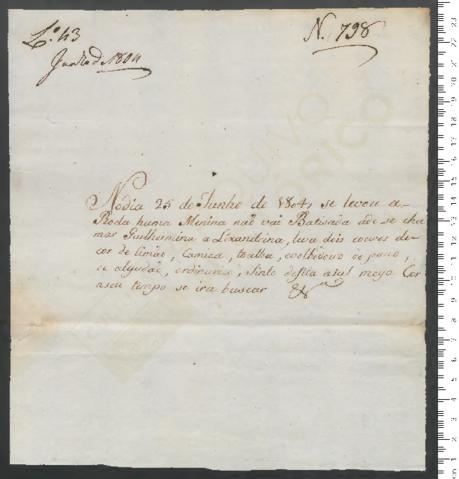 L.º 43
N. 798
Junho d 1804
No dia 25 de Junho de 1804 se levou a
Roda huma Menina não vai Batizada ade se cha
mar Guilhermina a Lixandrina, leva dois coeiros de
cor de limão, Camiza, toalha, de pano,
de algudão, ordinario, Sinto de fita azul meya Cor
a seu tempo se ira buscar &ª